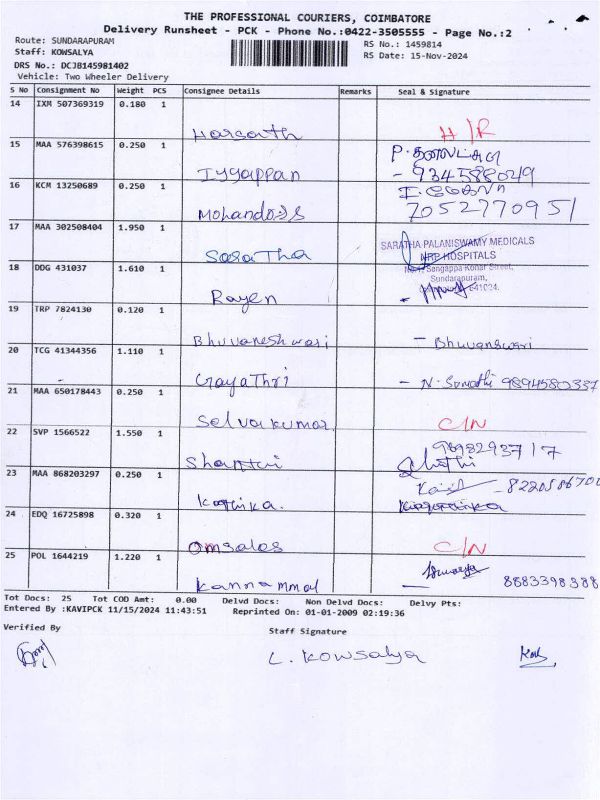 THE PROFESSIONAL COURIERS, COIMBATORE
Delivery Runsheet - PCK - Phone No.:0422-3505555 - Page No.:2
Route: SUNDARAPURAM
RS No.: 1459814
Staff: KOWSALYA
RS Date: 15-Nov-2024
DRS No.: DCJB145981402
Vehicle: Two Wheeler Delivery
S No Consignment No Weight PCS Consignee Details Remarks Seal & Signature
14 IXM 507369319 0.180 1
Harsath H/R
15 MAA 576398615 0.250 1
Iyyappan - 9345880
16 KCM 13250689 0.250 1
Mohandoss 7052770951
17 MAA 302508404 1.950 1
SaraTha
SARATHA PALANISWAMY MEDICALS
NRP HOSPITALS
Sengappa Konar Street,
Sundarapuram,
641024.
18 DDG 431037 1.610 1
Rayen
19 TRP 7824130 0.120 1
Bhuvaneshwari - Bhuvanswari
20 TCG 41344356 1.110 1
GayaThri - N. Sumathi 9894580337
21 MAA 650178443 0.250 1
Selvakumar. C/N
22 SVP 1566522 1.550 1
Shanthi 9898293717
23 MAA 868203297 0.250 1
Karthika.
24 EDQ 16725898 0.320 1
Omsales C/N
25 POL 1644219 1.220 1
Kannammal 8883398388
Tot Docs: 25 Tot COD Amt: 0.00 Delvd Docs: Non Delvd Docs: Delvy Pts:
Entered By :KAVIPCK 11/15/2024 11:43:51 Reprinted On: 01-01-2009 02:19:36
Verified By
Staff Signature
L. Kowsalya